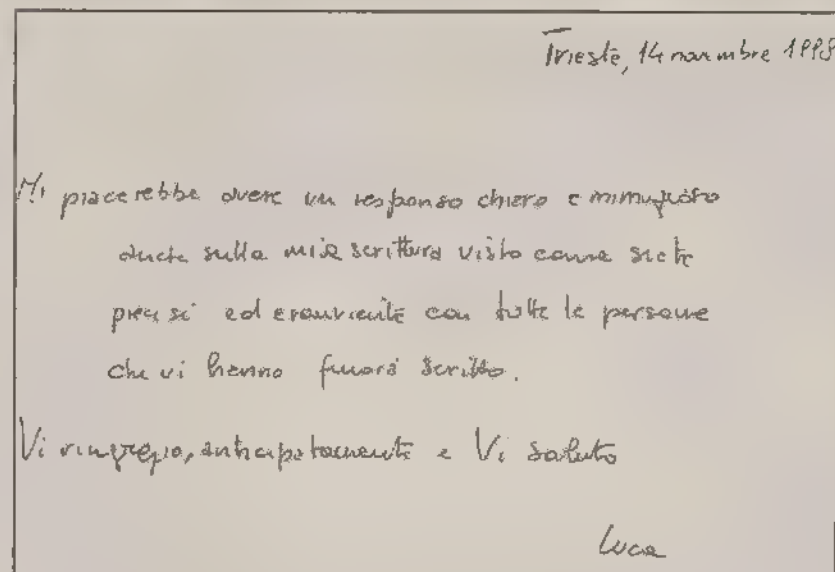 Trieste, 14 novembre 1998
Mi piacerebbe avere un responso chiaro e minuzioso
anche sulla mia scrittura visto come siete
precisi ed esaurienti con tutte le persone
che vi hanno finora scritto.
Vi ringrazio, anticipatamente e Vi saluto
Luca